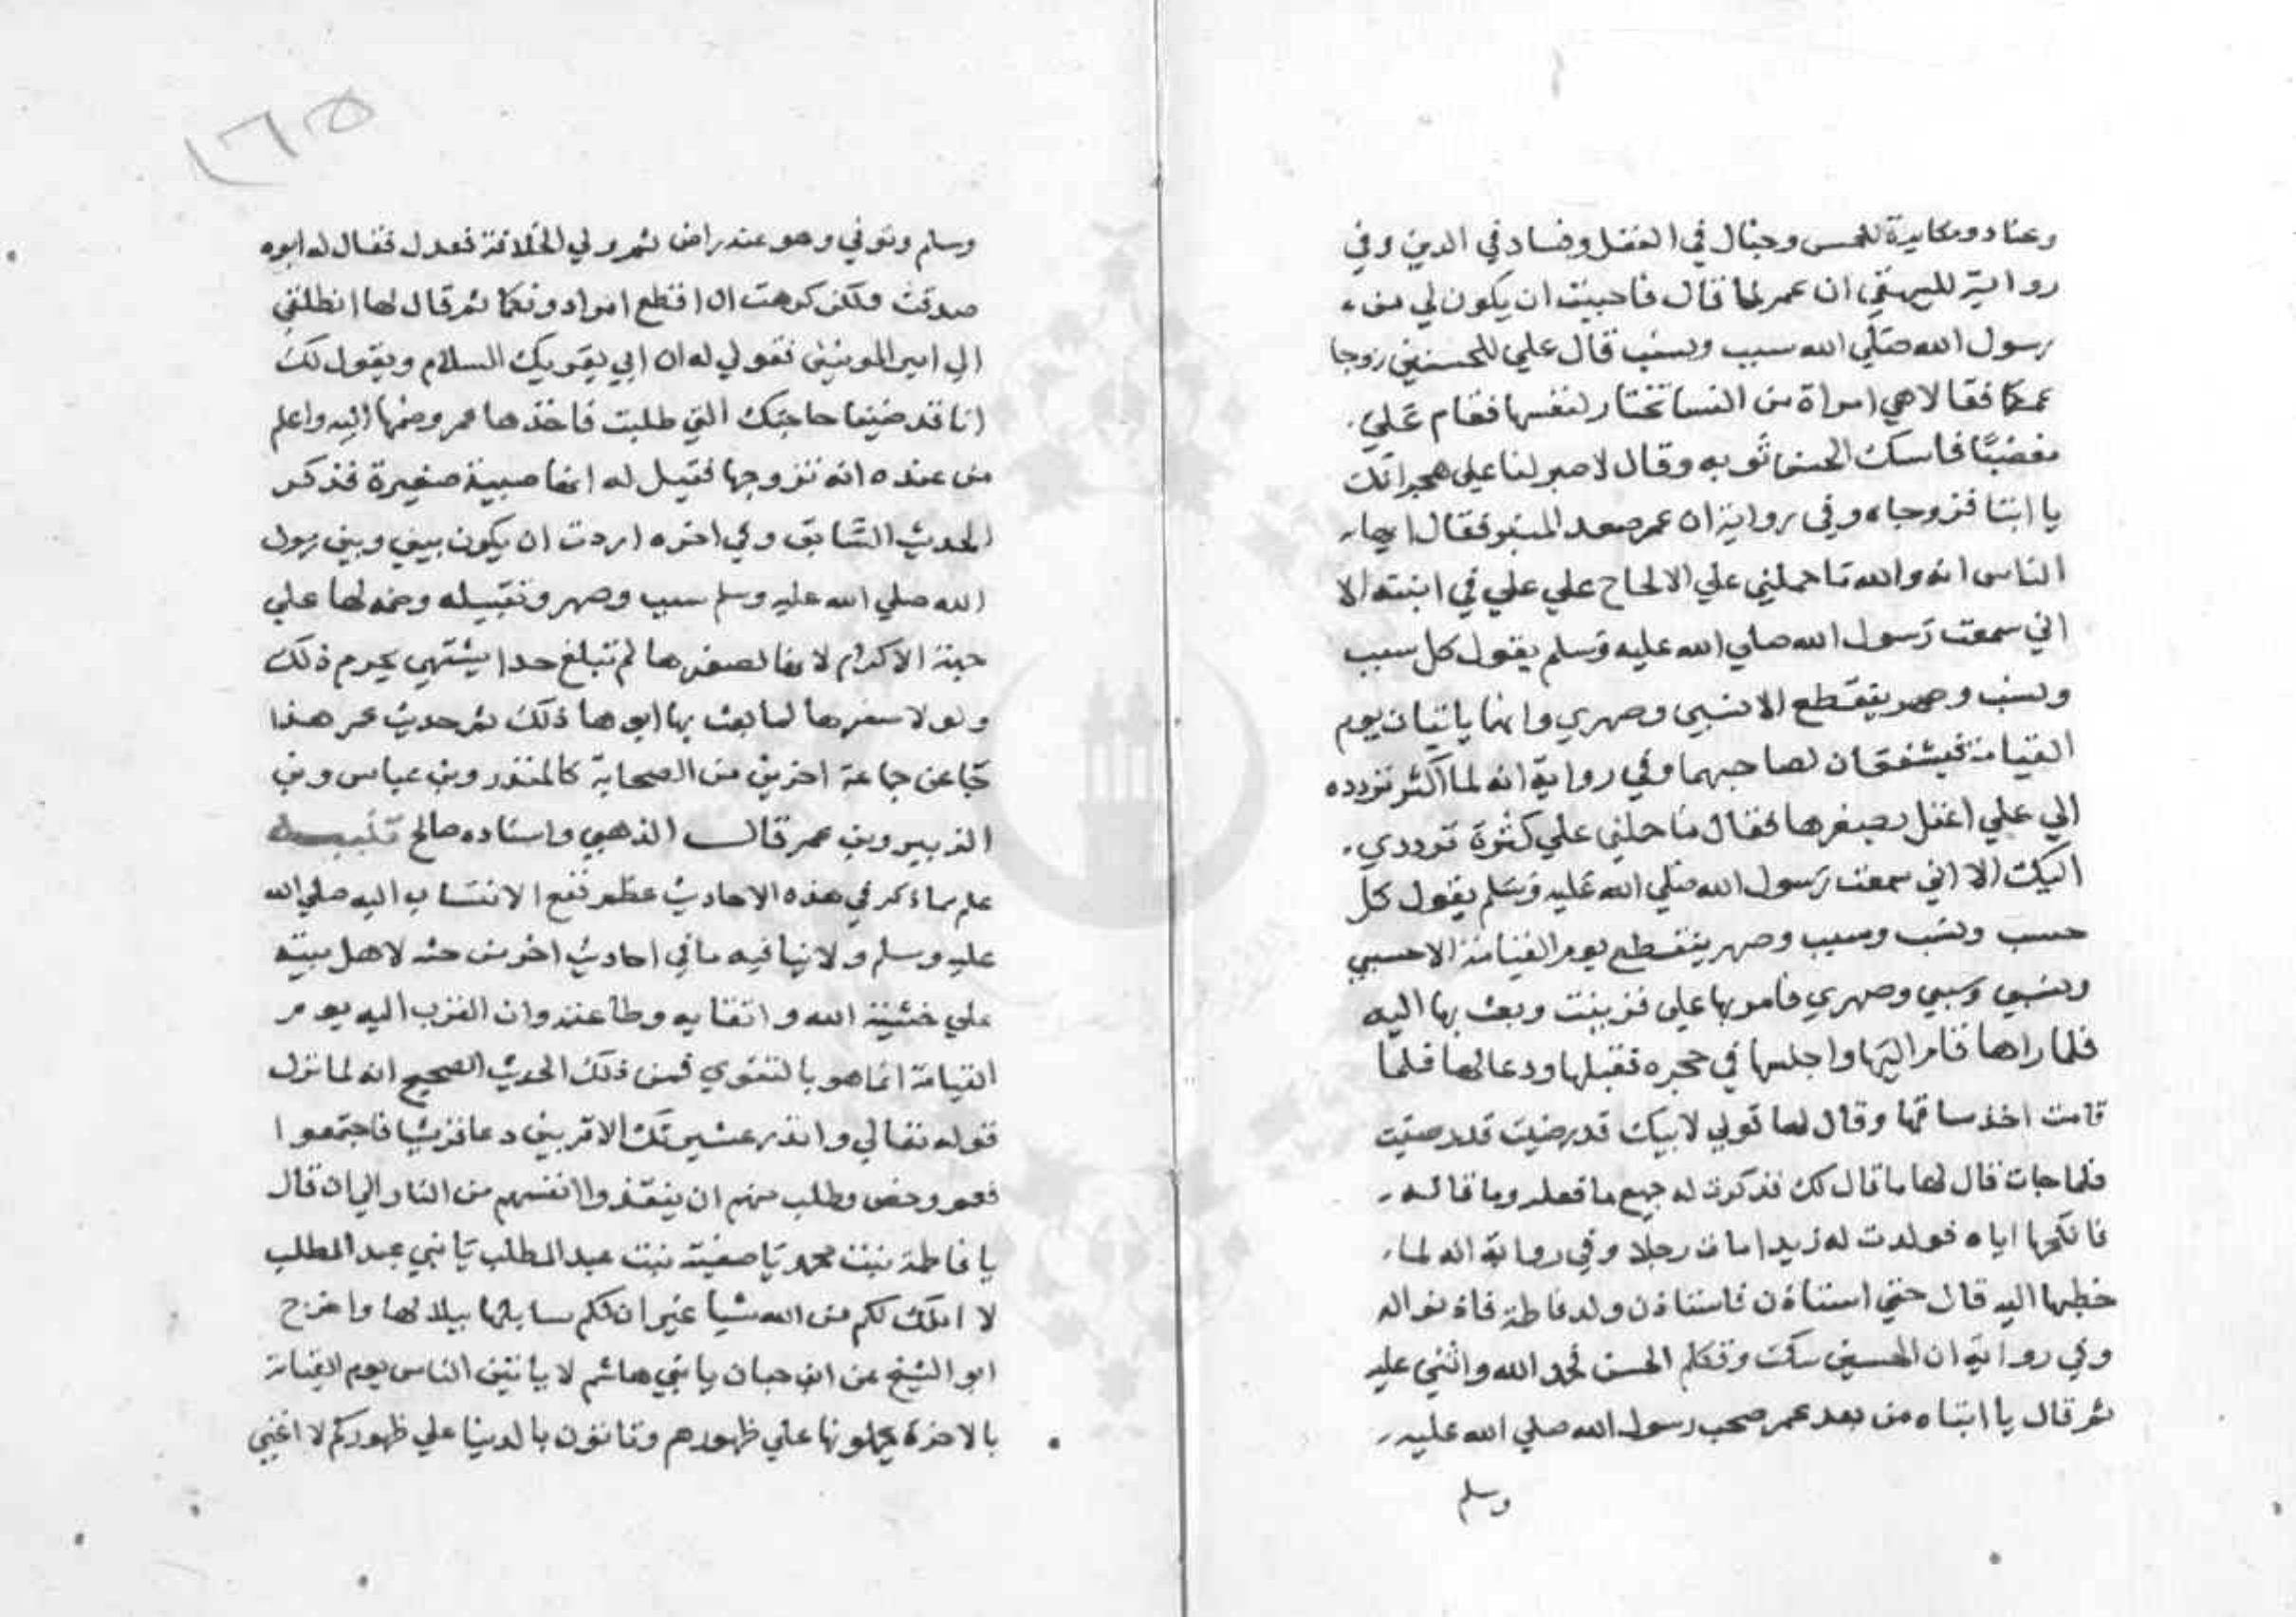 وعناد ومكابرة للحس وخبال في العقل وفساد في الدين وفي
رواية للبيهقي ان عمر لما قال فاحببت ان يكون لي من
رسول الله صلي الله سبب ونسب قال علي للحسنين زوجا
عمكما فقالا هي امراة من النسا تختار لنفسها فقام علي
مغضبًا فامسك الحسن ثوبه وقال لا صبر لنا علي هجرانك
يا ابتا فزوجاه وفي رواية ان عمر صعد المنبر فقال ايها
الناس انه والله ما حملني علي الالحاح علي علي في ابنته الا
اني سمعت رسول الله صلي الله عليه وسلم يقول كل سبب
ونسب وصهر ينقطع الا نسبي وصهري وانها ياتيان يوم
القيامة فيشفعان لصاحبهما وفي رواية انه لما اكثر تردده
الي علي اعتل بصغرها فقال ما حملني علي كثرة ترددي
اليك الا اني سمعت رسول الله صلي الله عليه وسلم يقول كل
حسب ونسب وسبب وصهر ينقطع يوم القيامة الا حسبي
ونسبي وسببي وصهري فامر بها علي فزينت وبعث بها اليه
فلما راها قام اليها واجلسها في حجره فقبلها ودعا لها فلما
قامت اخذ ساقها وقال لها قولي لابيك قد رضيت قد رضيت
فلما جات قال لها ما قال لك فذكرت له جميع ما فعله وما قاله
فانكحها اياه فولدت له زيدا مات رجلا وفي رواية انه لما
خطبها اليه قال حتي استاذن فاستاذن ولد فاطمة فاذنوا له
وفي رواية ان الحسين سكت وتكلم الحسن فحمد الله واثني عليه
ثم قال يا ابتاه من بعد عمر صحب رسول الله صلي الله عليه
وسلم
١٦٥
وسلم وتوفي وهو عنه راض ثم ولي الخلافة فعدل فقال له ابوه
صدقت ولكن كرهت ان اقطع امرا دونكما ثم قال لها انطلقي
الي امير المومنين فقولي له ان ابي يقريك السلام ويقول لك
انا قد قضينا حاجتك التي طلبت فاخذها عمر وضمها اليه واعلم
من عنده انه تزوجها فقيل له انها صبية صغيرة فذكر
الحديث السابق وفي اخره اردت ان يكون بيني وبين رسول
الله صلي الله عليه وسلم سبب وصهر وتقبيله وضمه لها علي
جهة الاكرام لانها لصغرها لم تبلغ حدا يشتهي يحرم ذلك
ولولا صغرها لما بعث بها ابوها ذلك ثم حديث عمر هذا
جا عن جماعة اخرين من الصحابة كالمنذر وبن عباس وبن
الزبير وبن عمر قال الذهبي واسناده صالح تنبيه
علم مما ذكر في هذه الاحاديث عظم نفع الانتساب اليه صلي الله
عليه وسلم ولا ينافيه ما في احاديث اخر من حثه لاهل بيته
علي خشية الله واتقايه وطاعته وان القرب اليه يوم
القيامة انما هو بالتقوي فمن ذلك الحديث الصحيح انه لما نزل
قوله تعالي وانذر عشيرتك الاقربين دعا قريشا فاجتمعوا
فعم وخص وطلب منهم ان ينقذوا انفسهم من النار الي ان قال
يا فاطمة بنت محمد يا صفية بنت عبد المطلب يا بني عبد المطلب
لا املك لكم من الله شيا غير ان لكم سابلها ببلالها واخرج
ابو الشيخ عن ابن حبان يا بني هاشم لا ياتين الناس يوم القيامة
بالاخرة يحملونها علي ظهورهم وتاتون بالدنيا علي ظهوركم لا اغني